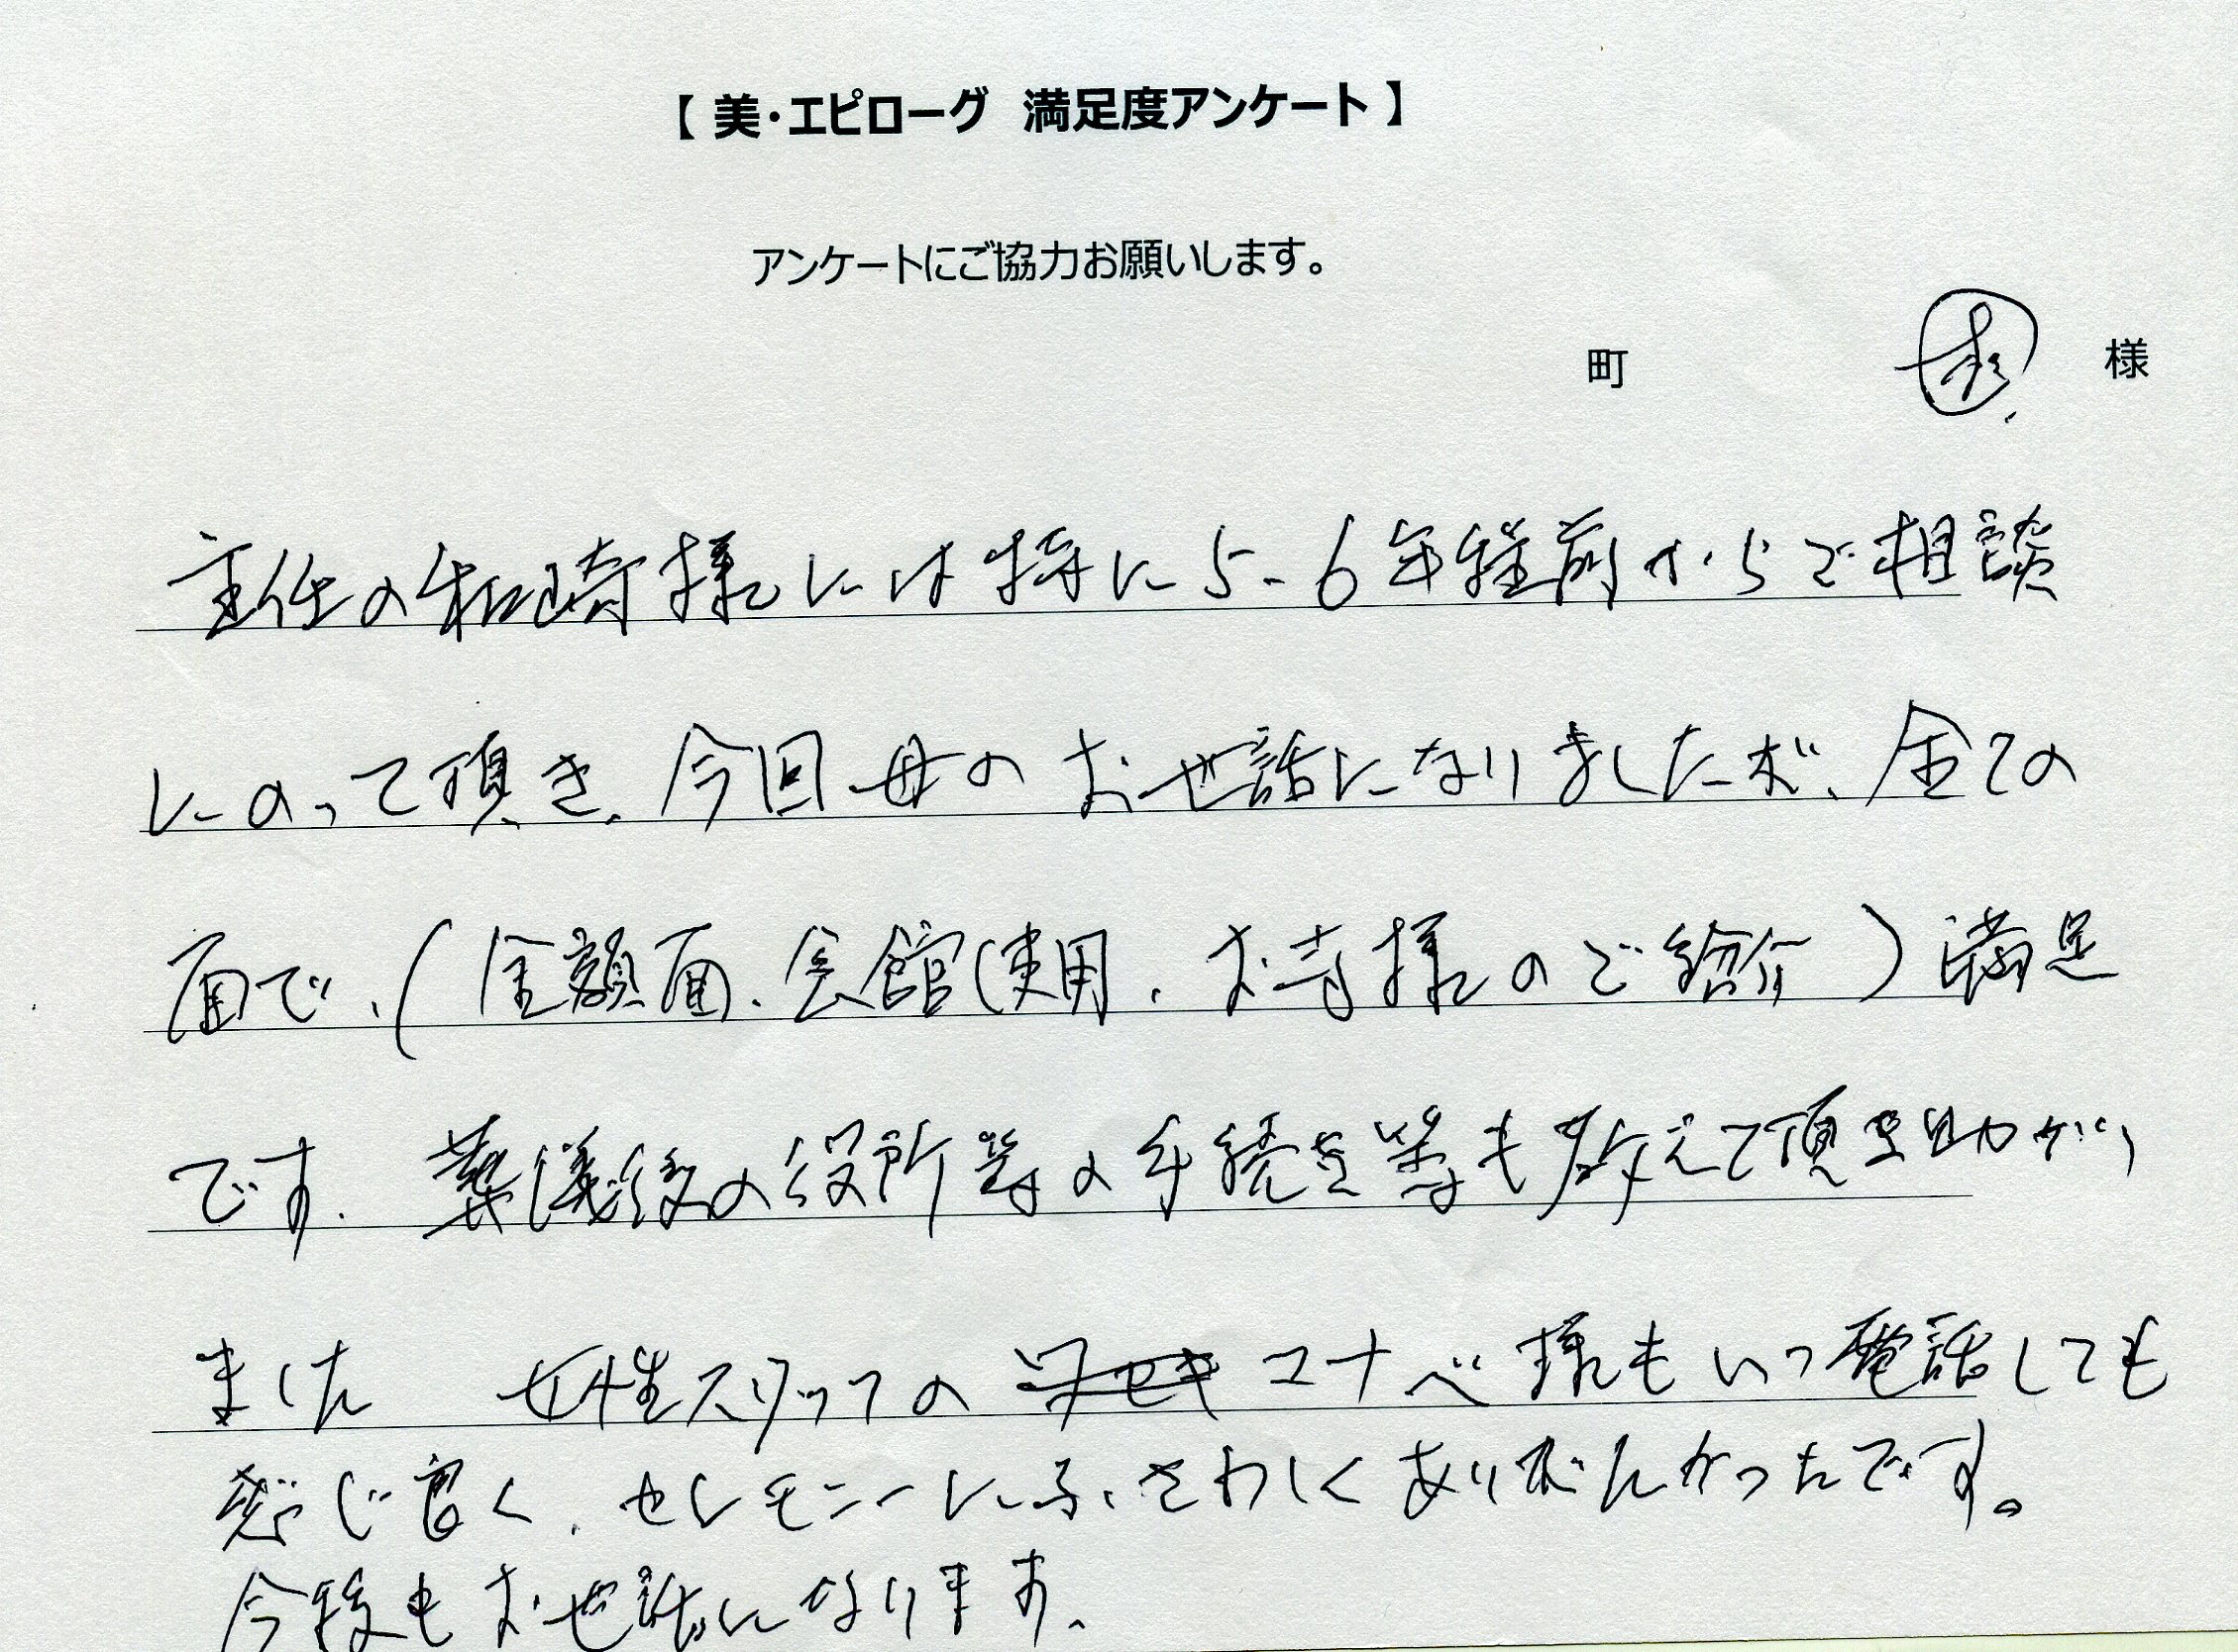 【 美・エピローグ 満足度アンケート 】
アンケートにご協力お願いします。
町 様
主任の 様には特に5、6年程前からご相談
にのって頂き、今回母のお世話になりましたが、全ての
面で、(金額面、会館使用、お寺様のご紹介)満足
です。葬儀後の役所等の手続き等も教えて頂き助かり
ました 女性スタッフの コナベ様もいつ電話しても
感じ良く、セレモニーにふさわしくありがたかったです。
今後もお世話になります。